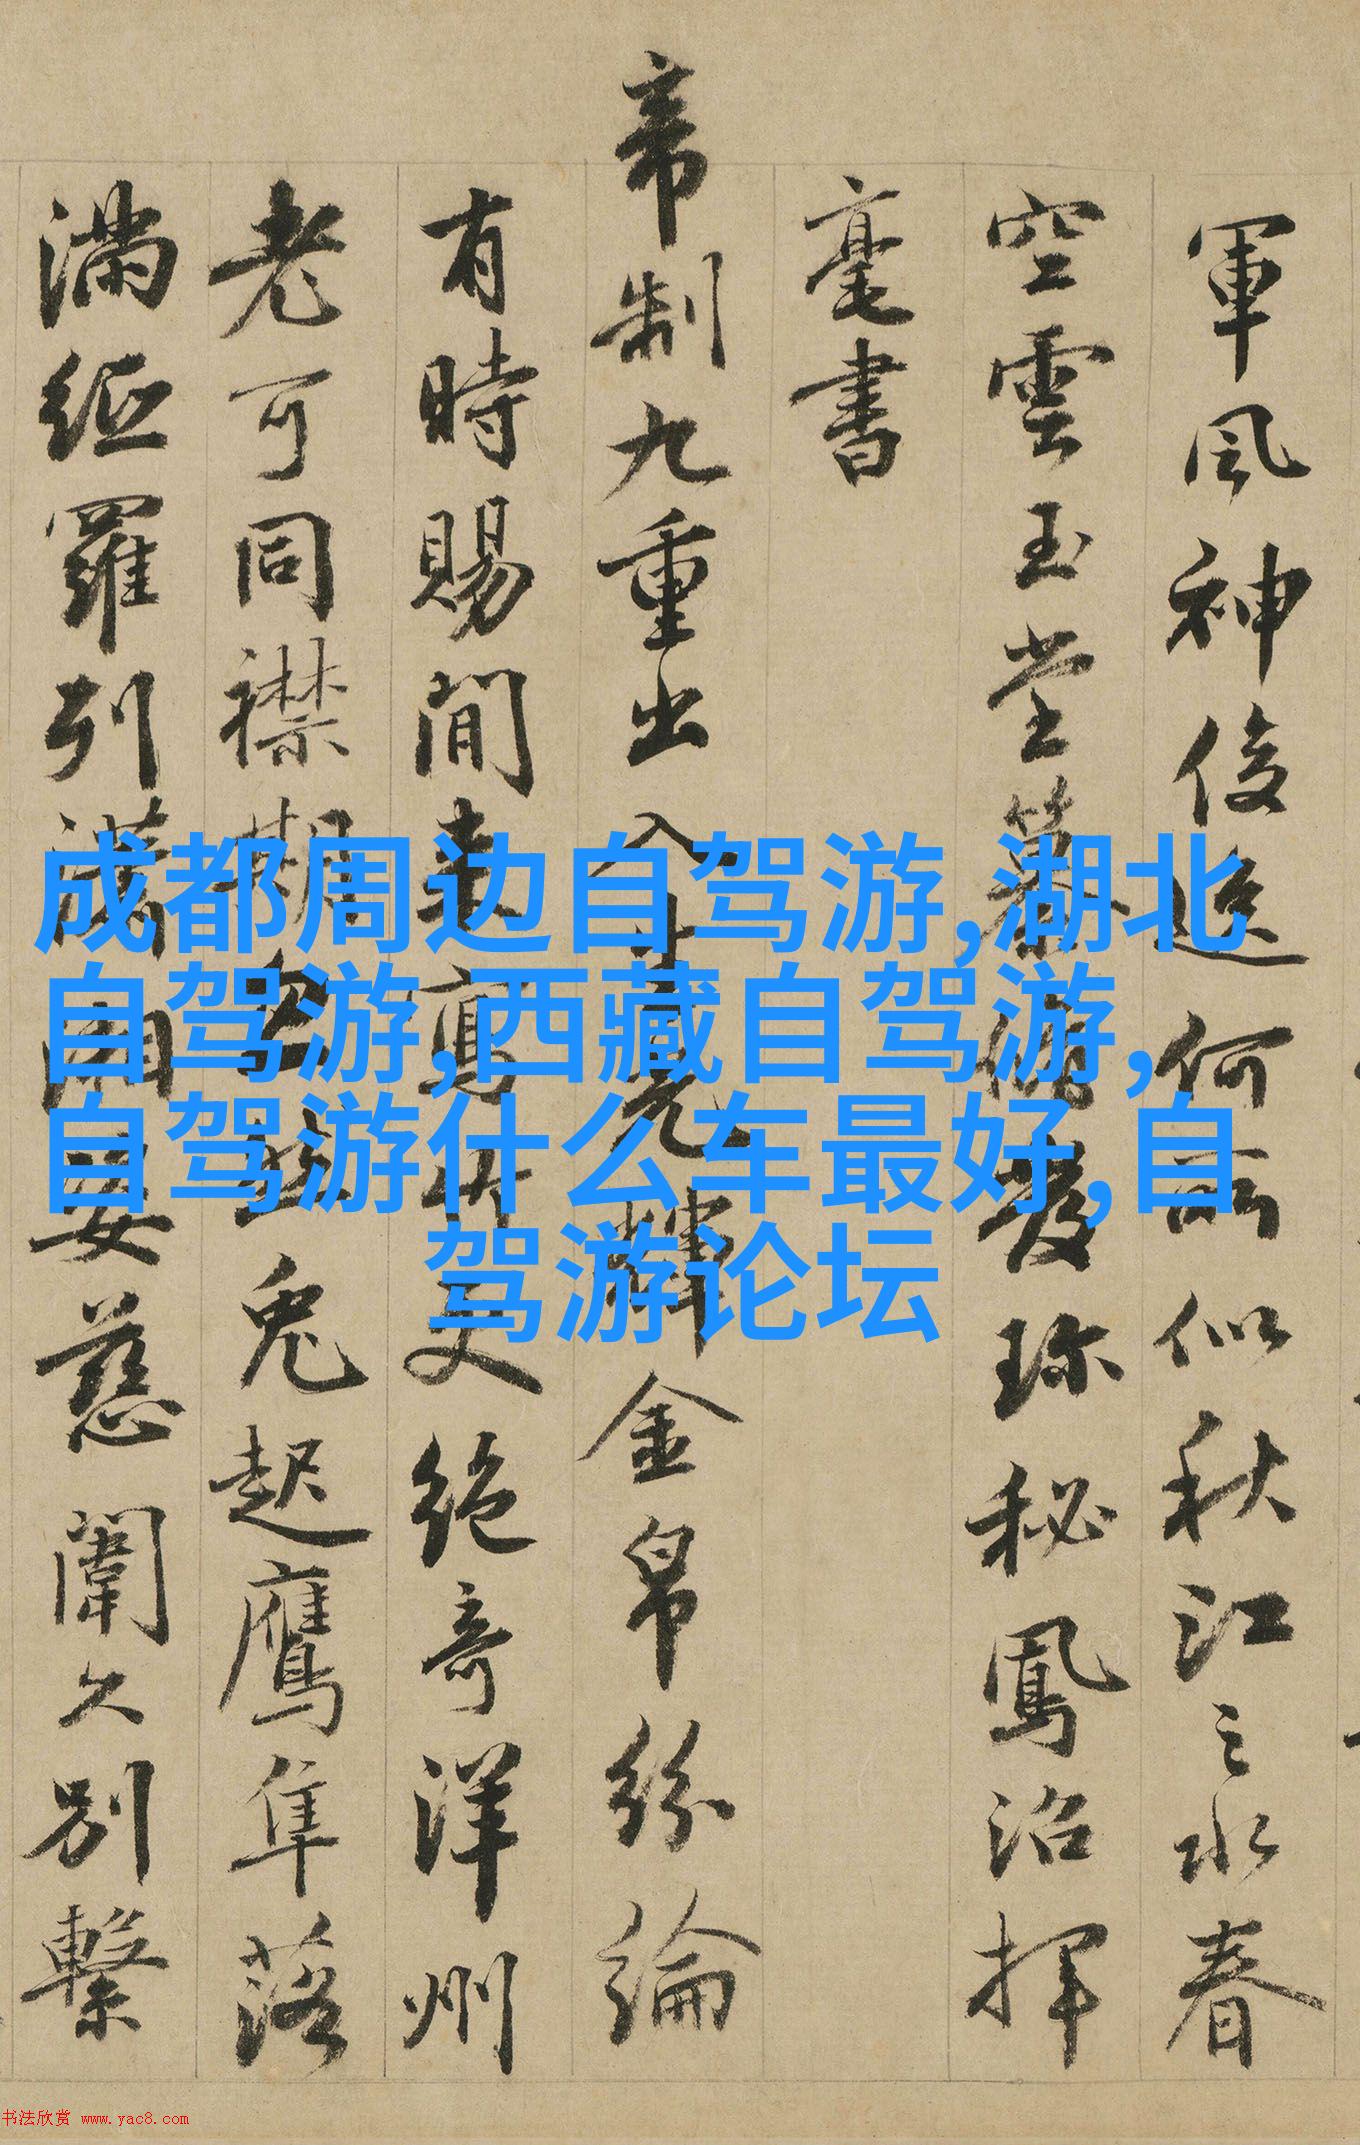 軍風神俊逸何所似秋江之水春
空雲玉堂發珍秘鳳沼揮
毫書
帝制九重出入光輝金帛紛綸
有時賜閒来寫竹更絕奇洋州
老可同襟期兔起鷹隼落
滿羅列瀟湘姿慈闈久別繫
成都周边自驾游,湖北
自驾游,西藏自驾游,
自驾游什么车最好,自
驾游论坛
书法欣赏 www.yac8.com